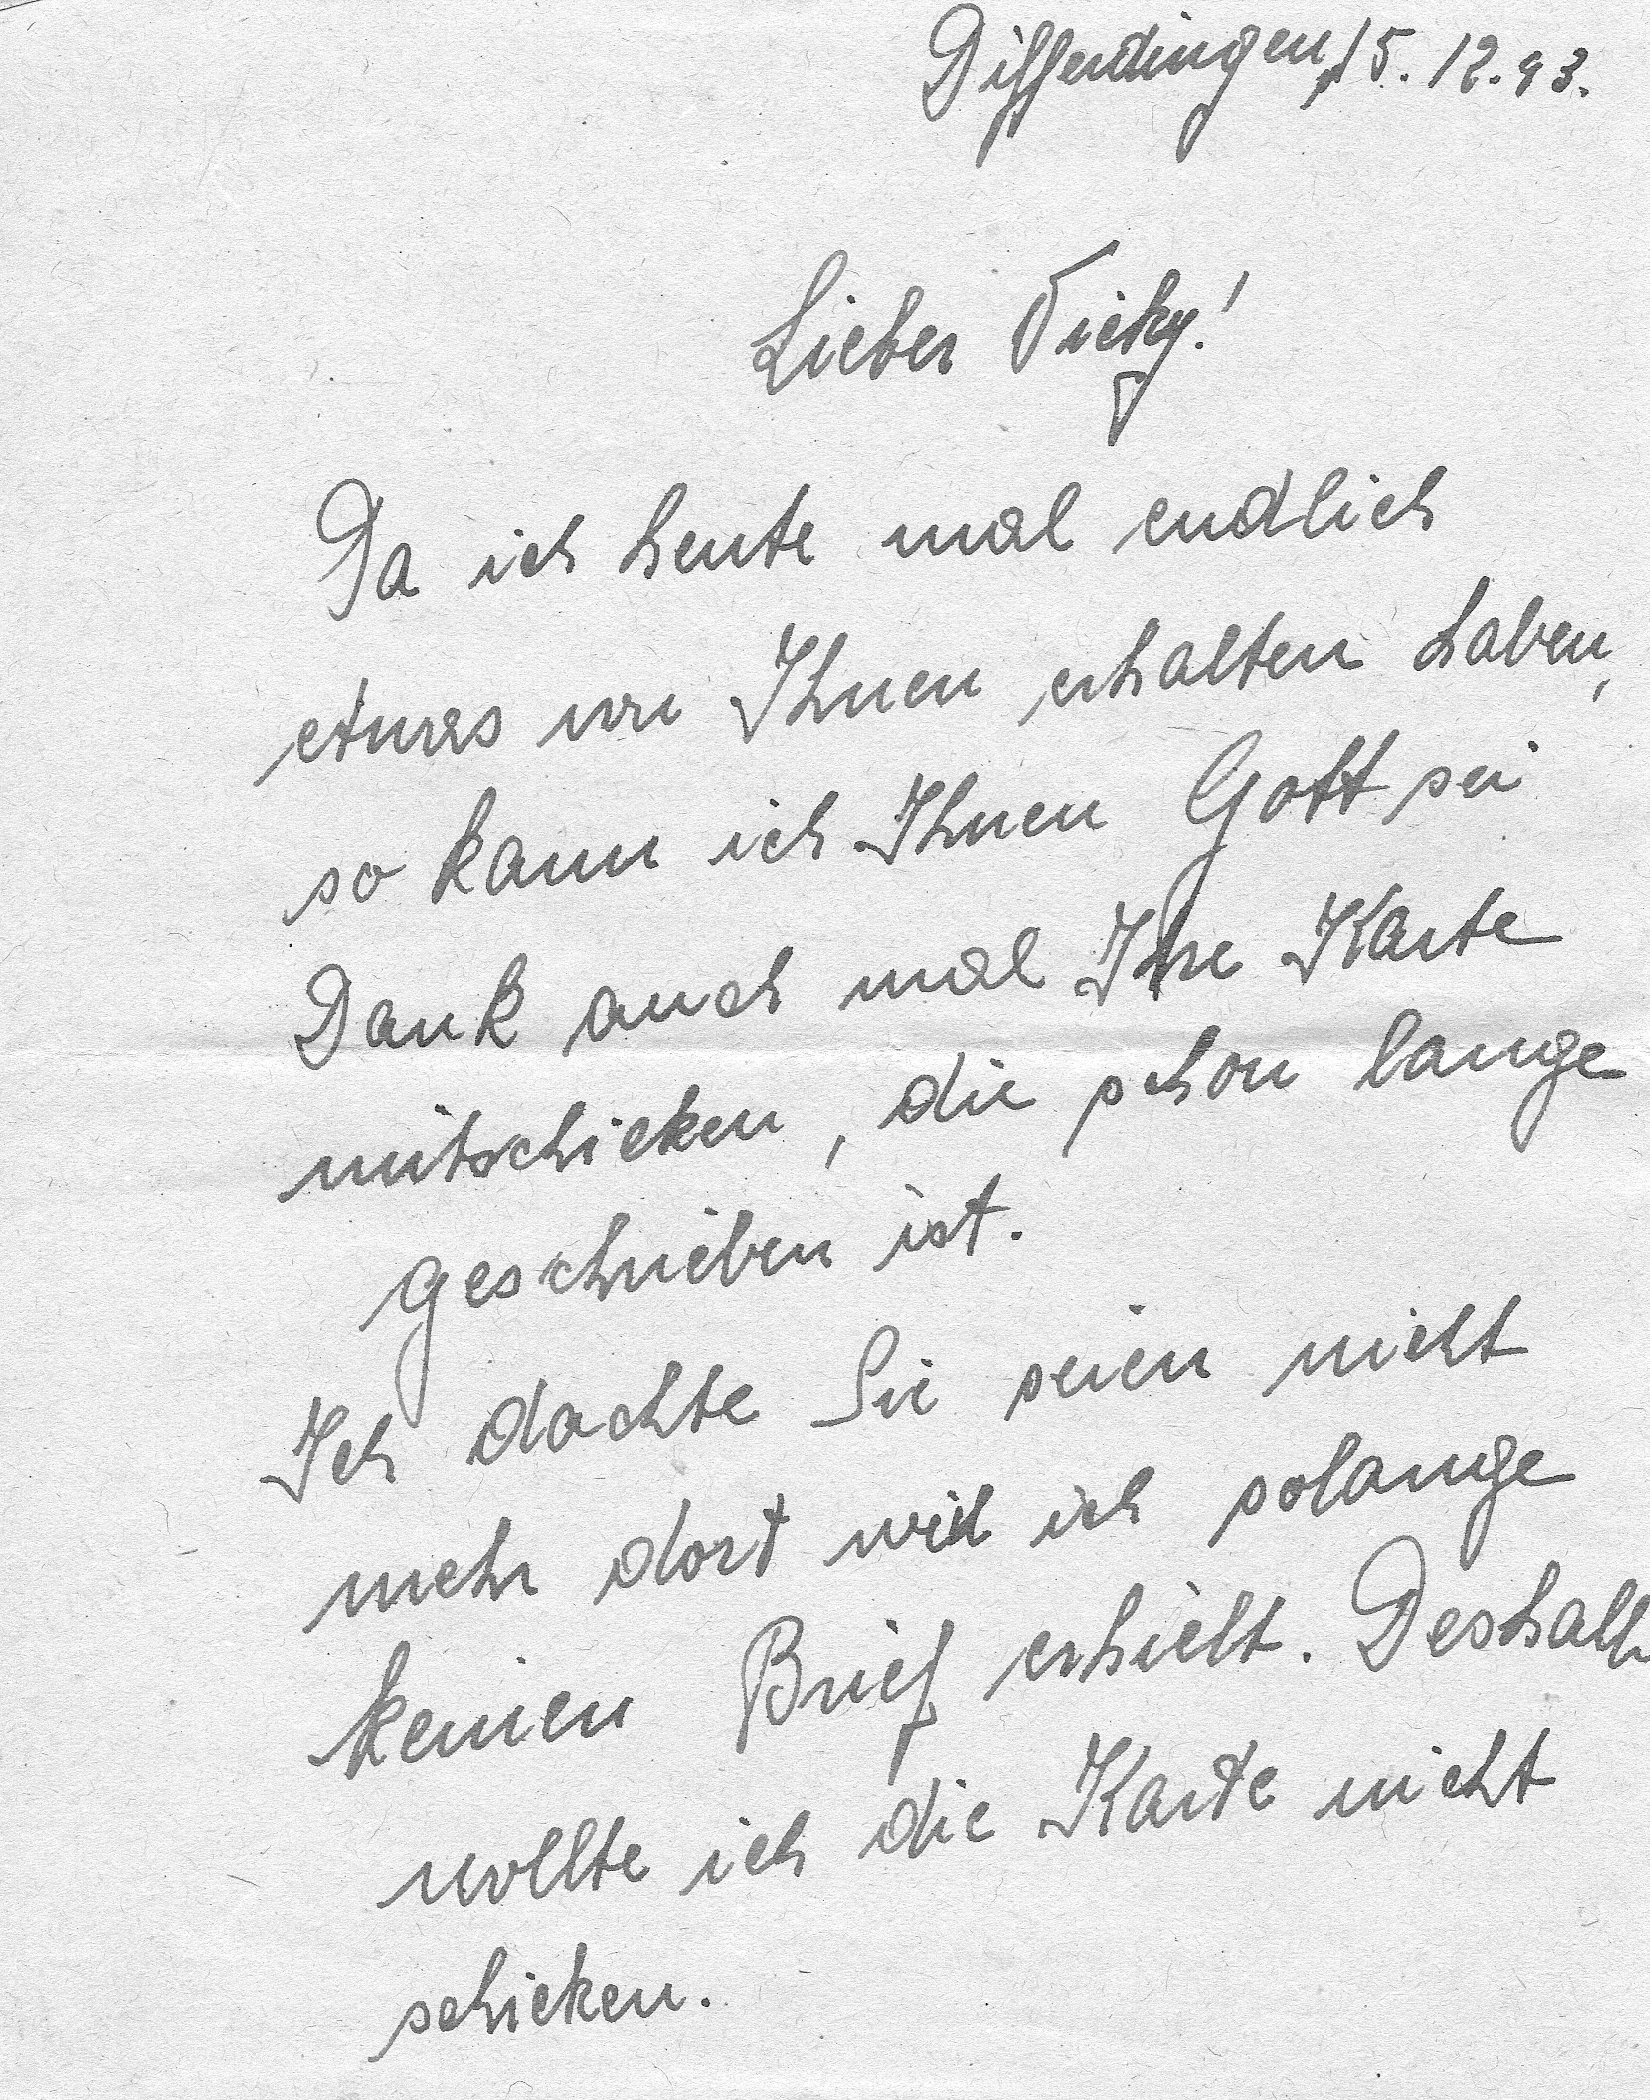 Differdingen, 15. 12. 43.
Lieber Vicky!
Da ich heute mal endlich
etwas von Ihnen erhalten haben,
so kann ich Ihnen Gott sei
Dank auch mal Ihre Karte
mitschicken, die schon lange
geschrieben ist.
Ich dachte Sie seien nicht
mehr dort weil ich solange
keinen Brief erhielt. Deshalb
wollte ich die Karte nicht
schicken.